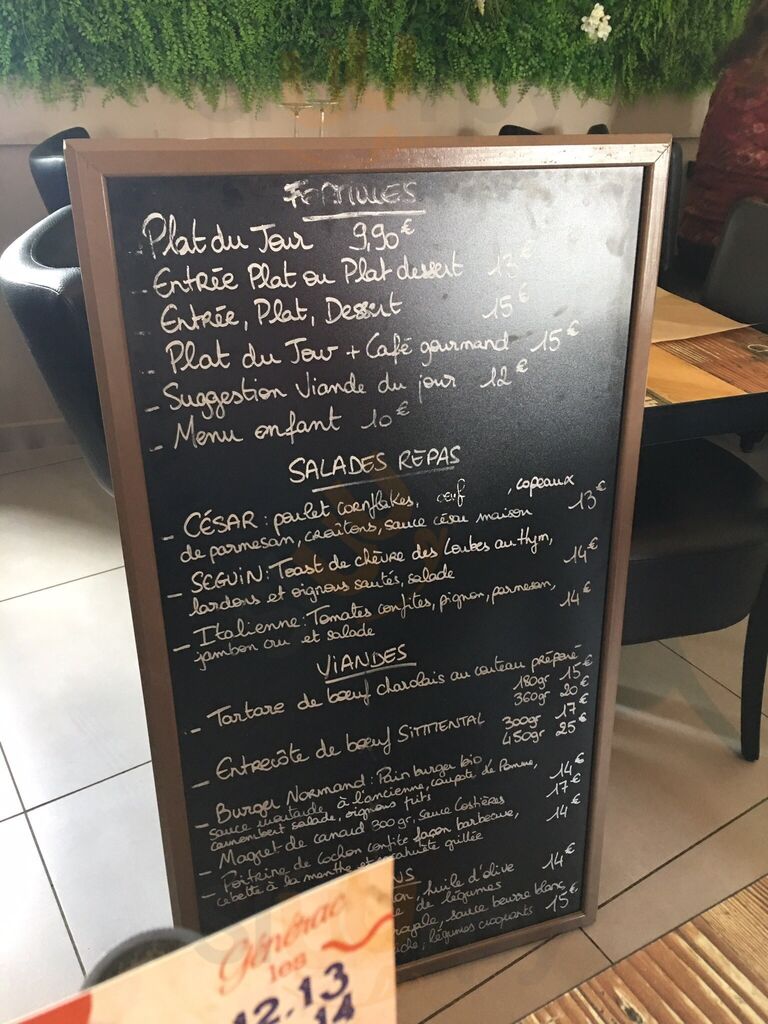 FORMULES
- Plat du Jour 9,90€
- Entrée Plat ou Plat dessert 13€
- Entrée, Plat, Dessert 15€
- Plat du Jour + Café gourmand 15€
- Suggestion Viande du jour 12€
- Menu enfant 10€
SALADES REPAS
- CÉSAR : poulet cornflakes, oeuf , copeaux
de parmesan, croûtons, sauce césar maison 13€
- SEGUIN : Toast de chèvre des Loubes au thym,
lardons et oignons sautés, salade 14€
- Italienne : Tomates confites, pignon, parmesan,
jambon cru et salade 14€
VIANDES
- Tartare de boeuf charolais au couteau préparé
180gr 15€
360gr 20€
- Entrecôte de boeuf SIMMENTAL 300gr 17€
450gr 25€
- Burger Normand : Pain burger bio,
sauce moutarde à l'ancienne, compote de Pomme,
camembert salade, oignons frits 14€
- Magret de canard 300gr, sauce Costières 17€
- Poitrine de Cochon confite façon barbecue,
cebette à la menthe et cacahuète grillée 14€
NS
, huile d'olive
de légumes 14€
royale, sauce beurre blanc
, légumes croquants 15€
Générac
les
12.13
14